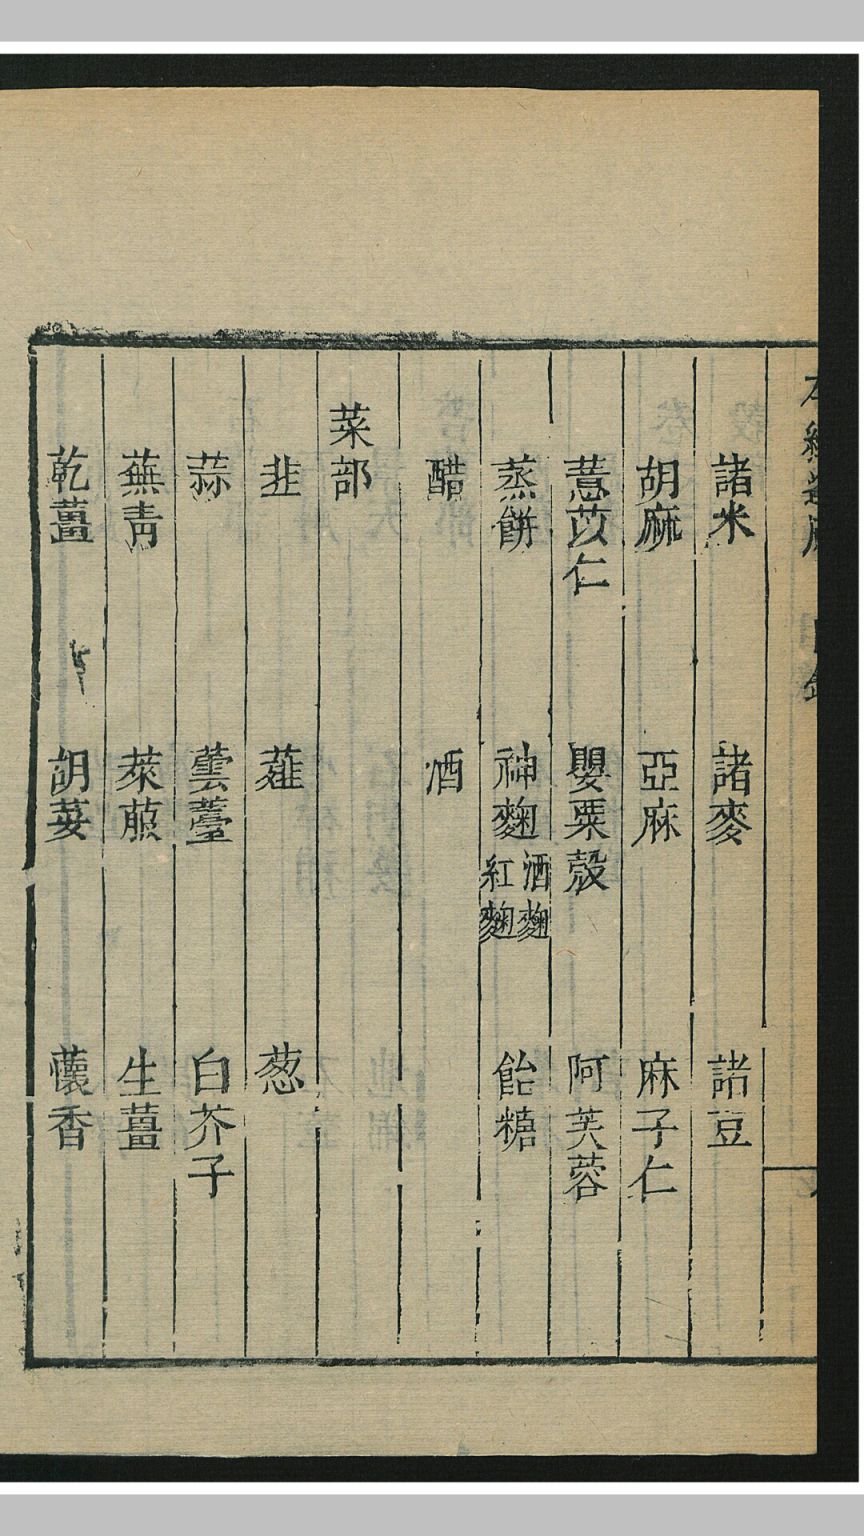 諸米 諸麥 諸豆
胡麻 亞麻 麻子仁
薏苡仁 嬰粟殼 阿芙蓉
蒸餅 神麴 酒麴 紅麴 飴糖
醋 酒
菜部
韭 薤 葱
蒜 蕓薹 白芥子
蕪青 萊菔 生薑
乾薑 胡荽 蘹香